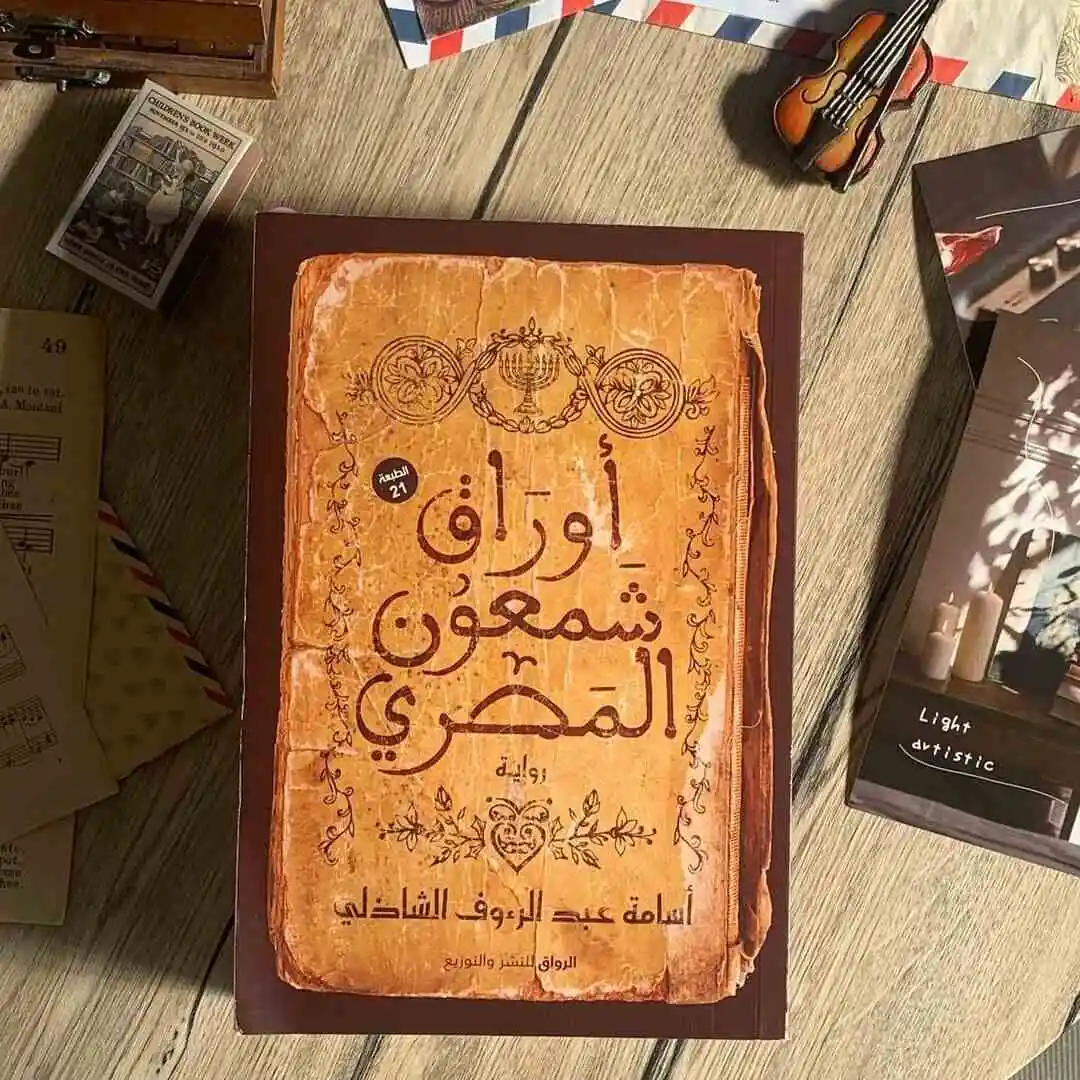 CHILDREN'S BOOK WEEK
49
الطبعة
21
أَورَاق
شِمعُون
المَصْري
رواية
أسامة عبد الرءوف الشاذلي
الرواق للنشر والتوزيع
Light
artistic